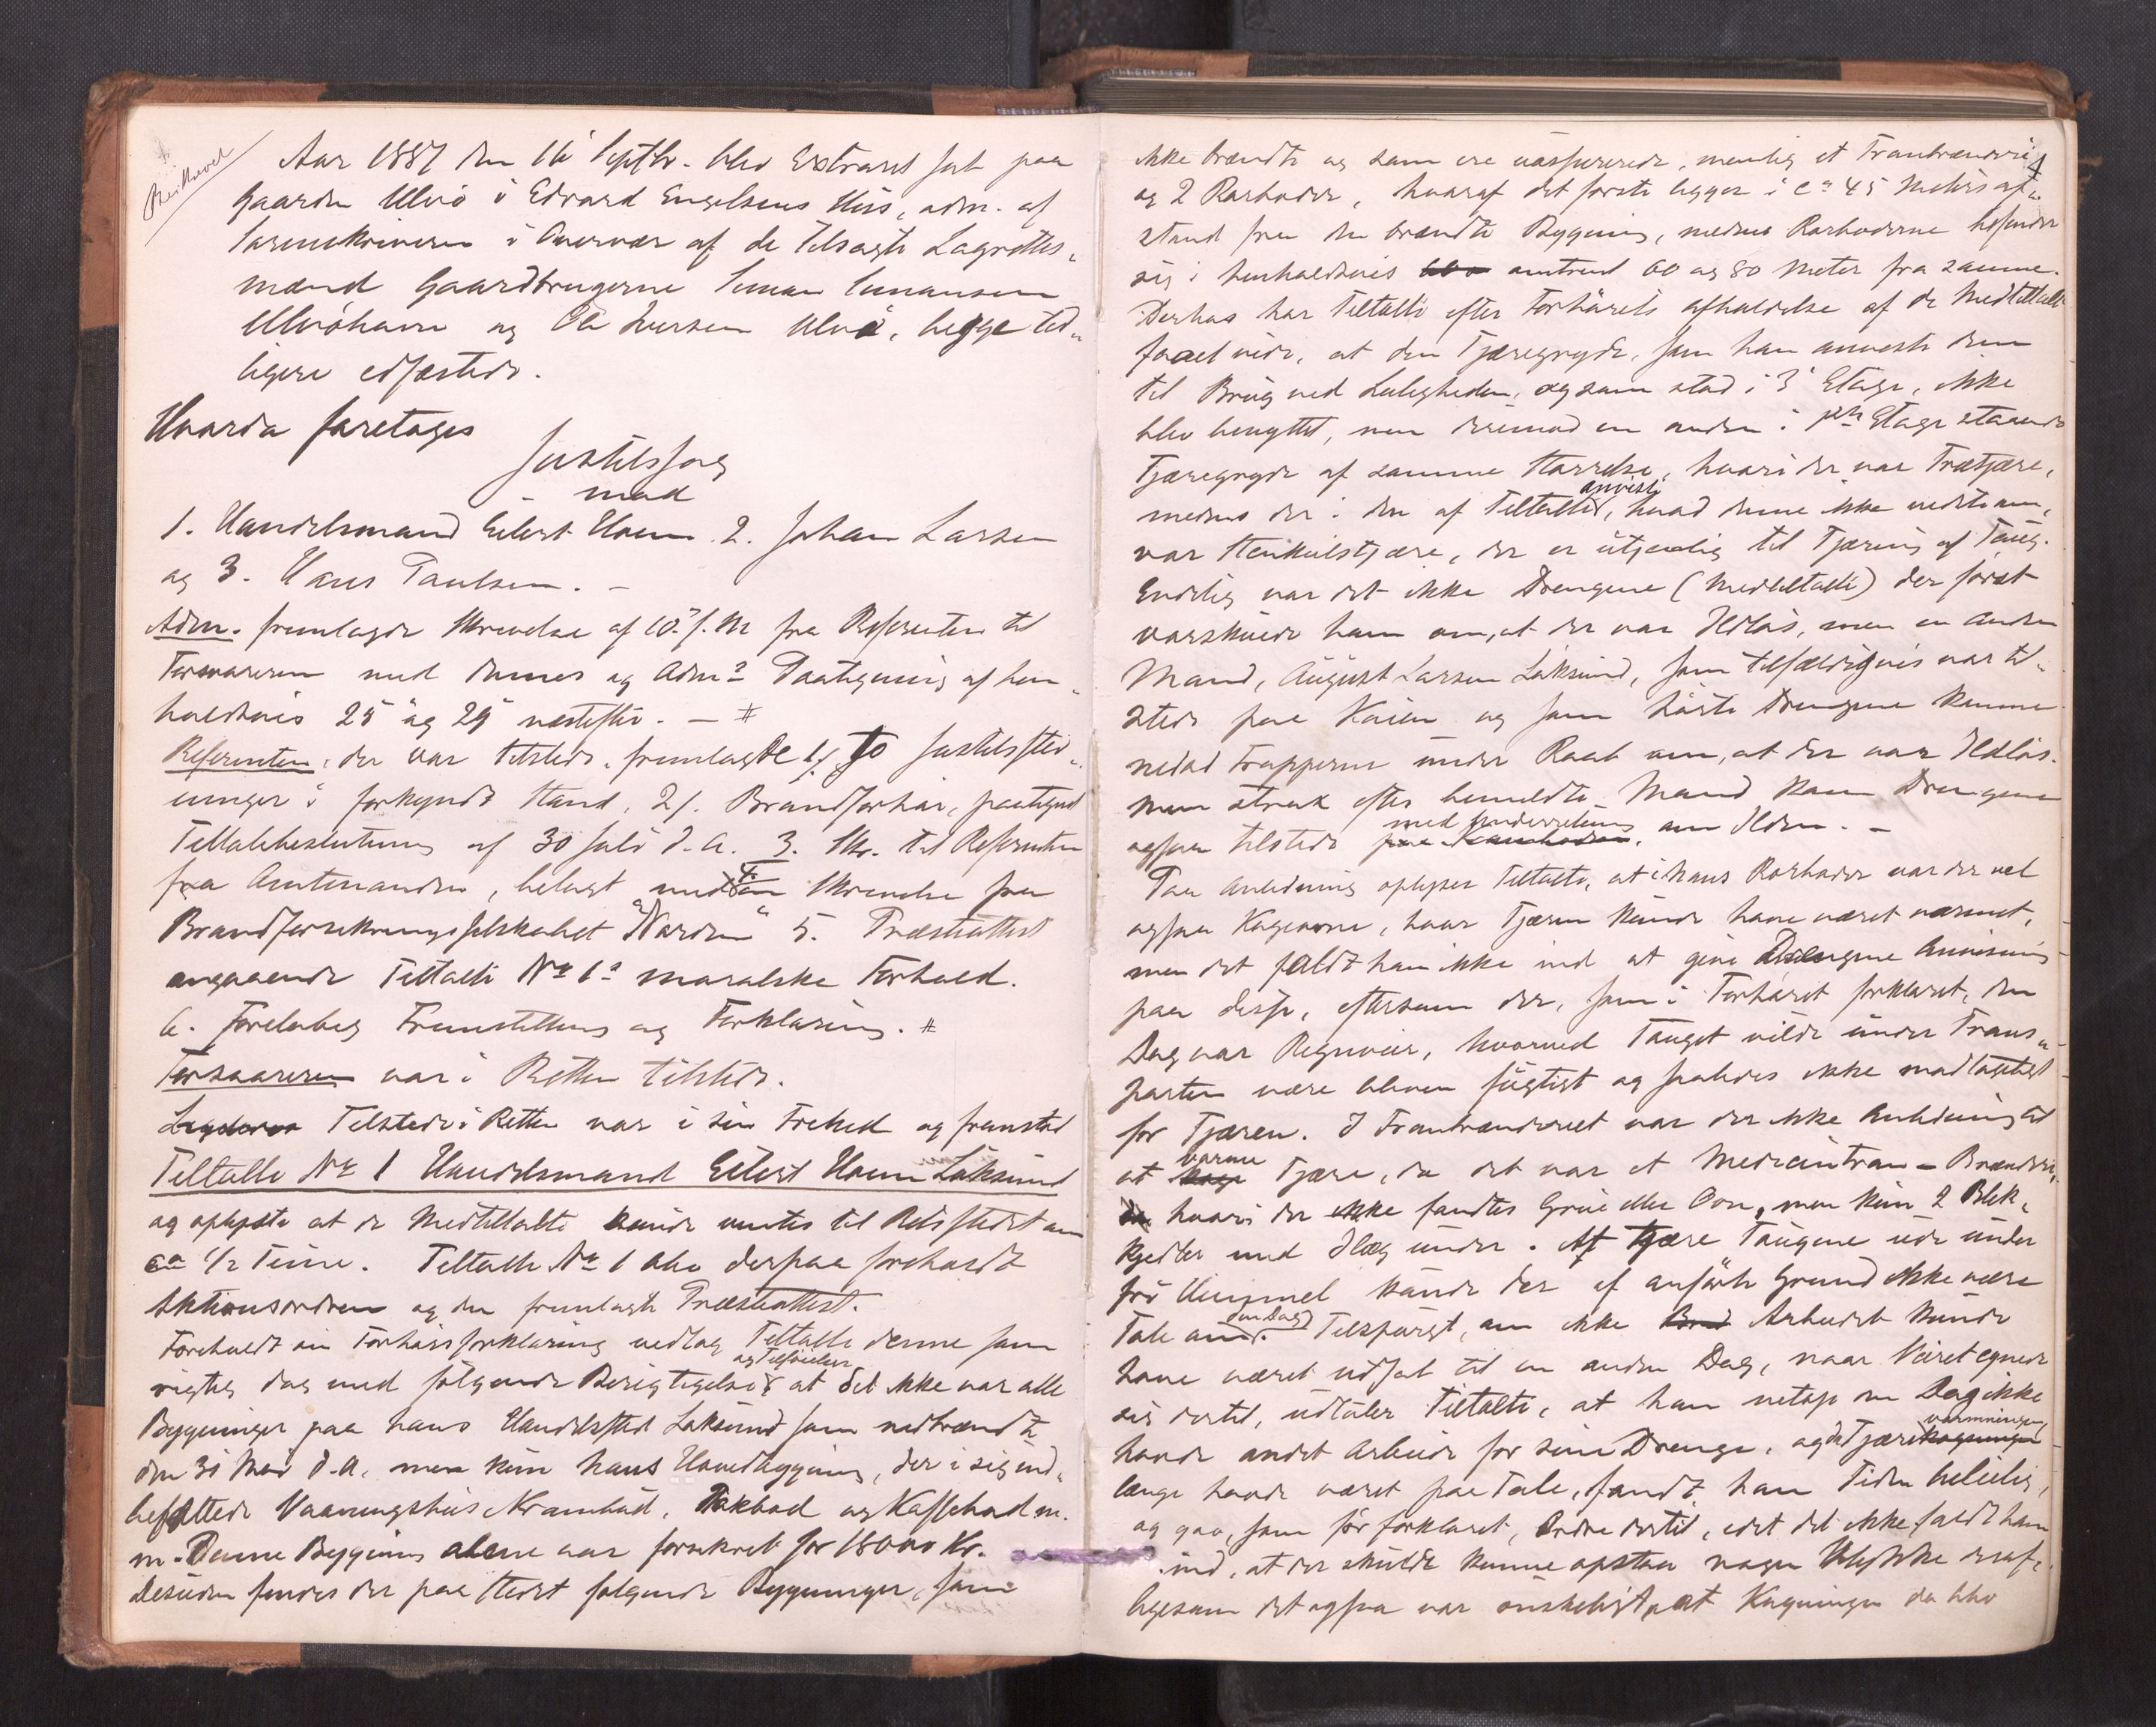 Beskaaret
Aar 1887 den 16 Septbr. blev Extraret sat paa
Gaarden Ulvø i Edvard Engelsens Hus, adm. af
Sorenskriveren i Overvær af de tilsagte Lagrettes-
mænd Gaardbrugerne Simon Simonsen
Ulvøhavn og Ole Iversen Ulvø, begge tid-
ligere edfæstede.
Hvorda foretoges
Justitssag
mod
1. Handelsmand Eilert Hoem 2. Johan Larsen
og 3. Hans Paulsen. -
Adm. fremlagde Skrivelse af 10. f. M. fra Referenten til
Forsvareren med dennes og Adms Paategning af hen-
holdsvis 25 og 29 næstefter. - #
Referenten, der var tilstede, fremlagde 1/. to Justitsstev-
ninger i forkyndt Stand, 2/. Brandforhør, paategnet
Tiltalebeslutning af 30 Juli d. A. 3. Skr. til Referenten
fra Amtmanden, belagt med 4. en Skrivelse fra
Brandforsikringsselskabet "Norden" 5. Præsteattest
angaaende Tiltalte No 1s moralske Forhold.
6. Foreløbig Fremstilling og Forklaring. #
Forsvareren var i Retten tilstede.
Tilstede i Retten var i sin Frihed og fremstod
Tiltalte No 1 Handelsmand Eilert Hoem Laksund
og oplyste at de Medtiltalte kunde ventes til Retsstedet om
ca 1/2 Time. Tiltalte No 1 blev derpaa foreholdt
Aktionsordren og den fremlagte Præsteattest.
Foreholdt sin Forhørsforklaring vedtog Tiltalte denne som
og Tilføielser
rigtig dog med følgende Berigtigelser at det ikke var alle
Bygninger paa hans Handelssted Laksund som nedbrændte
den 31 Mai d. A. men kun hans Hovedbygning, der i sig ind-
befattede Vaaningshus Krambod, Pakbod og Kaffebod m.
m. Denne Bygning alene var forsikret for 18000 Kr.
Desuden findes der paa Stedet følgende Bygninger, som
4
ikke brændte og som ere uassurerede, nemlig et Tranbrænderi
og 2 Rorboder, hvoraf det første ligger i ca 45 Meters af-
stand fra den brændte Bygning, medens Rorboderne befinder
sig i henholdsvis omtrent 60 og 80 Meter fra samme.
Derhos har Tiltalte efter Forhørets afholdelse af de Medtiltalte
faaet vide, at den Tjæregryde, som han anviste dem
til Brug ved Leiligheden, og som stod i 3' Etage, ikke
blev benyttet, men derimod en anden i 1ste Etage staaende
Tjæregryde af samme Størrelse, hvori der var Trætjære,
anviste
medens der i den af Tiltalte, hvad denne ikke vidste om,
var Stenkulstjære, der er utjenlig til Tjæring af Taug.
Endelig var det ikke Drengene (Medtiltalte) der først
varskuede ham om, at der var Ildløs, men en anden
Mand, August Larsen Laksund, som tilfældigvis var til-
stede paa Kaien og som hørte Drengene komme
nedad Trapperne under Raab om, at der var Ildløs.
Men straks efter bemeldte Mand kom Drengene
med Underretning
ogsaa tilstede paa Kramboden. om Ilden. -
Paa Anledning oplyser Tiltalte, at i hans Rorboder var der vel
ogsaa Kogeovne, hvor Tjæren kunde have været varmet,
men det faldt ham ikke ind at give Drengene Anvisning
paa disse, eftersom der, som i Forhøret forklaret, den
Dag var Regnveir, hvorved Tauget vilde under Trans-
porten være bleven fugtigt og saaledes ikke modtageligt
for Tjæren. I Tranbrænderiet var der ikke Anledning til
varme
at koge Tjære, da det var et Medicintran-Brænderi,
hvori der ikke fandtes Grue eller Ovn, men kun 2 Blik-
kjedler med Ilæg under. At tjære Taugene ude under
fri Himmel kunde der af anførte Grund ikke være
den Dag
Tale om. Tilspurgt, om ikke Arbeidet kunde
have været udsat til en anden Dag, naar Veiret egnede
sig dertil, udtaler Tiltalte, at han netop den Dag ikke
varmningen
havde andet Arbeide for sine Drenge, og da Tjærekogningen
længe havde været paa Tale, fandt han Tiden beleilig,
og gav, som før forklaret, Ordre dertil, idet det ikke faldt ham
ind, at der skulde kunne opstaa nogen Ulykke deraf,
ligesom det ogsaa var ønskeligt at Kogningen da blev